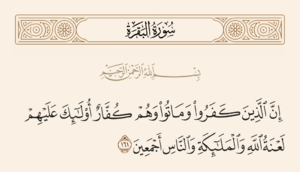 سُورَةُ البَقَرَةِ
بِسۡمِ ٱللَّهِ ٱلرَّحۡمَٰنِ ٱلرَّحِيمِ
إِنَّ ٱلَّذِينَ كَفَرُواْ وَمَاتُواْ وَهُمۡ كُفَّارٌ أُوْلَٰٓئِكَ عَلَيۡهِمۡ
لَعۡنَةُ ٱللَّهِ وَٱلۡمَلَٰٓئِكَةِ وَٱلنَّاسِ أَجۡمَعِينَ ١٦١